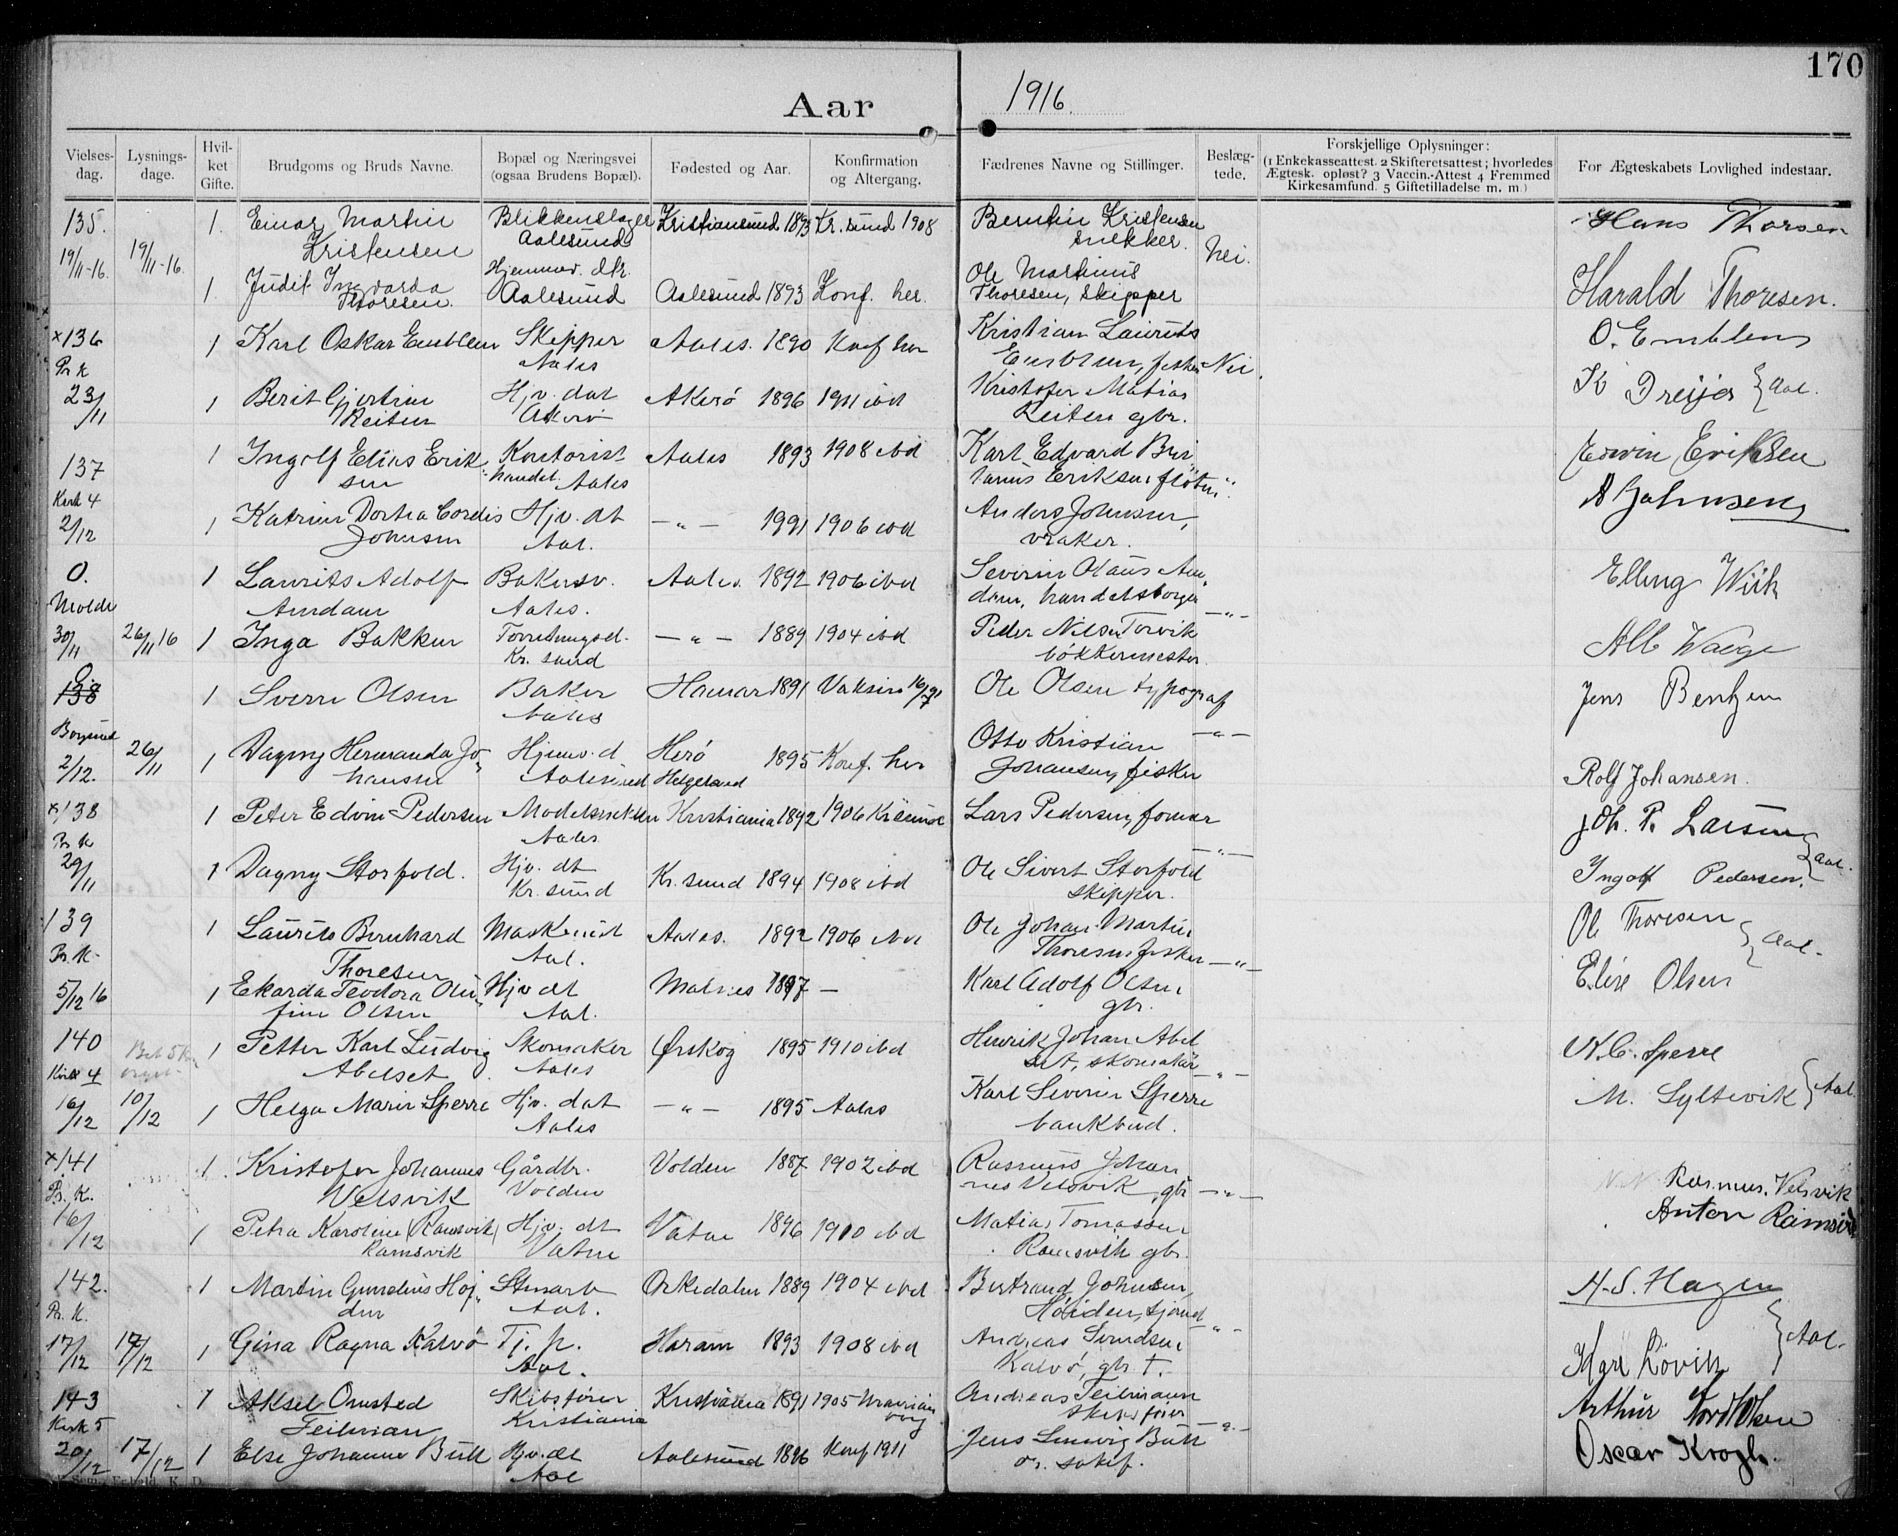 170
Aar 1916.
Vielses-dag. Lysnings-dage. Hvil-ket Gifte. Brudgoms og Bruds Navne. Bopæl og Næringsvei (ogsaa Brudens Bopæl). Fødested og Aar. Konfirmation og Altergang. Fædrenes Navne og Stillinger. Beslæg-tede. Forskjellige Oplysninger: (1 Enkekasseattest. 2 Skifteretsattest; hvorledes Ægtesk. opløst? 3 Vaccin.-Attest 4 Fremmed Kirkesamfund. 5 Giftetilladelse m. m.) For Ægteskabets Lovlighed indestaar.
135. 1. Einar Martin Blikkenslager Kristiansund 1893 Kr.sund 1908 Berntin Kristensen Hans Thorsen
Kristensen Aalesund snekker.
19/11-16. 19/11-16. Nei.
1. Judit Ingvarda Hjemmev. dtr. Aalesund 1893 Konf. her. Ole Martinus Harald Thoresen.
Thoresen. Aalesund Thoresen, skipper
x136 1 Karl Oskar Emblem Skipper Aales. 1890 Konf her Kristian Laurits O. Emblem
Pr k Aales Emblem, fisker Nei.
23/11 1 Berit Gjertine Hjv. dat Akerø 1896 1911 ibd Kristofer Matias K Dreyer Aal.
Reiten Akerø Reiten gbr.
137 1 Ingolf Elias Erik Kontorist Aales 1893 1908 ibd Karl Edvard Edwin Eriksen
sen handel. Aales Eriksen
Kirk 4 A Johnsen
2/12 1 Katrine Dortea Cordis Hjv. dt —"— 1991 1906 ibd Anders Johnsen,
Johnsen Aal. vraker.
0. 1 Laurits Adolf Bakersv. Aales. 1892 1906 ibd Severin Olaus Am Elling Wiik
Molde Amdam Aales. dam, handelsborger —"—
30/11 26/11 16 1 Inga Bakken Forretningsd. —"— 1889 1904 ibd Peder Nilsen Torvik Alb Waage
Kr. sund bøkkermester.
0.
138 1 Sverre Olsen Baker Hamar 1891 Vaksin Ole Olsen typograf Jens Bentzen
Borgund Aales —"—
2/12. 26/11 1 Dagny Hermanda Jo Hjemv. d. Herø 1895 Konf. her Otto Kristian
hansen Aalesund Helgeland Johansen, fisker Rolf Johansen.
x138 1 Peter Edvin Pedersen Modelsnekker Kristiania 1892 1906 Krisund Lars Pedersen, Joh. P. Larsen
Pr k Aales —"—
29/11 1 Dagny Storfold. Hjv. dt Kr. sund 1894 1908 ibd Ole Sivert Storfold Ingolf Pedersen. Aal.
Kr. sund skipper.
139 1 Laurits Bernhard Maskinist Aales. 1892 1906 ibd Ole Johan Martin Ol Thoresen Aal.
Pr. K. Thoresen Aal. Thoresen fisker —"—
5/12 16 1 Ekarda Teodora Olu Hjv dt Malnes 1897 — Karl Adolf Olsen Elise Olsen
fine Olsen Aal. gbr.
140 1 Petter Karl Ludvig Skomaker Ørskog 1895 1910 ibd Henrik Johan Abel K. C. Sperre
Kirke 4 Abelset Aales set, skomaker —"—
16/12 10/12 1 Helga Marie Sperre Hjv. dat —"— 1895 Aales Karl Severin Sperre M. Syltevik Aal.
Aales bankbud.
x141 1. Kristofer Johannes Gårdbr. Volden 1887 1902 ibd Rasmus Johan Rasmus. Velsvik
Pr. K. Velsvik Volden nes Velsvik, gbr —"— Anton Ramsvik
16/12 1 Petra Karoline (Ramsvik) Hjv. dt Vatne 1896 1910 ibd Matias Tomassen
Ramsvik Vatne Ramsvik gbr.
142. 1 Martin Gunelius Høi Stuert Orkedalen 1889 1904 ibd Bertrand Johnsen A. S. Hagen
Pr. K. den Aal. Høiden, —"—
17/12 17/12 1 Gina Ragna Kalvø Tj. p. Haram 1893 1908 ibd Andreas Svendsen Aal.
Aal. Kalvø, gbr. †. Karl Løvik
143 1 Aksel Omsted Skibsfører Kristiania 1891 1905 Andreas Teilmann Arthur Nordt Olsen
Kirk 5 Teilman Kristiania skibsfører —"—
20/12 17/12 1 Else Johanne Bull Hjv. dt Aalesund 1896 Konf 1911 Jens Ludvig Bull Oscar Krogh.
Aal or. sakf.